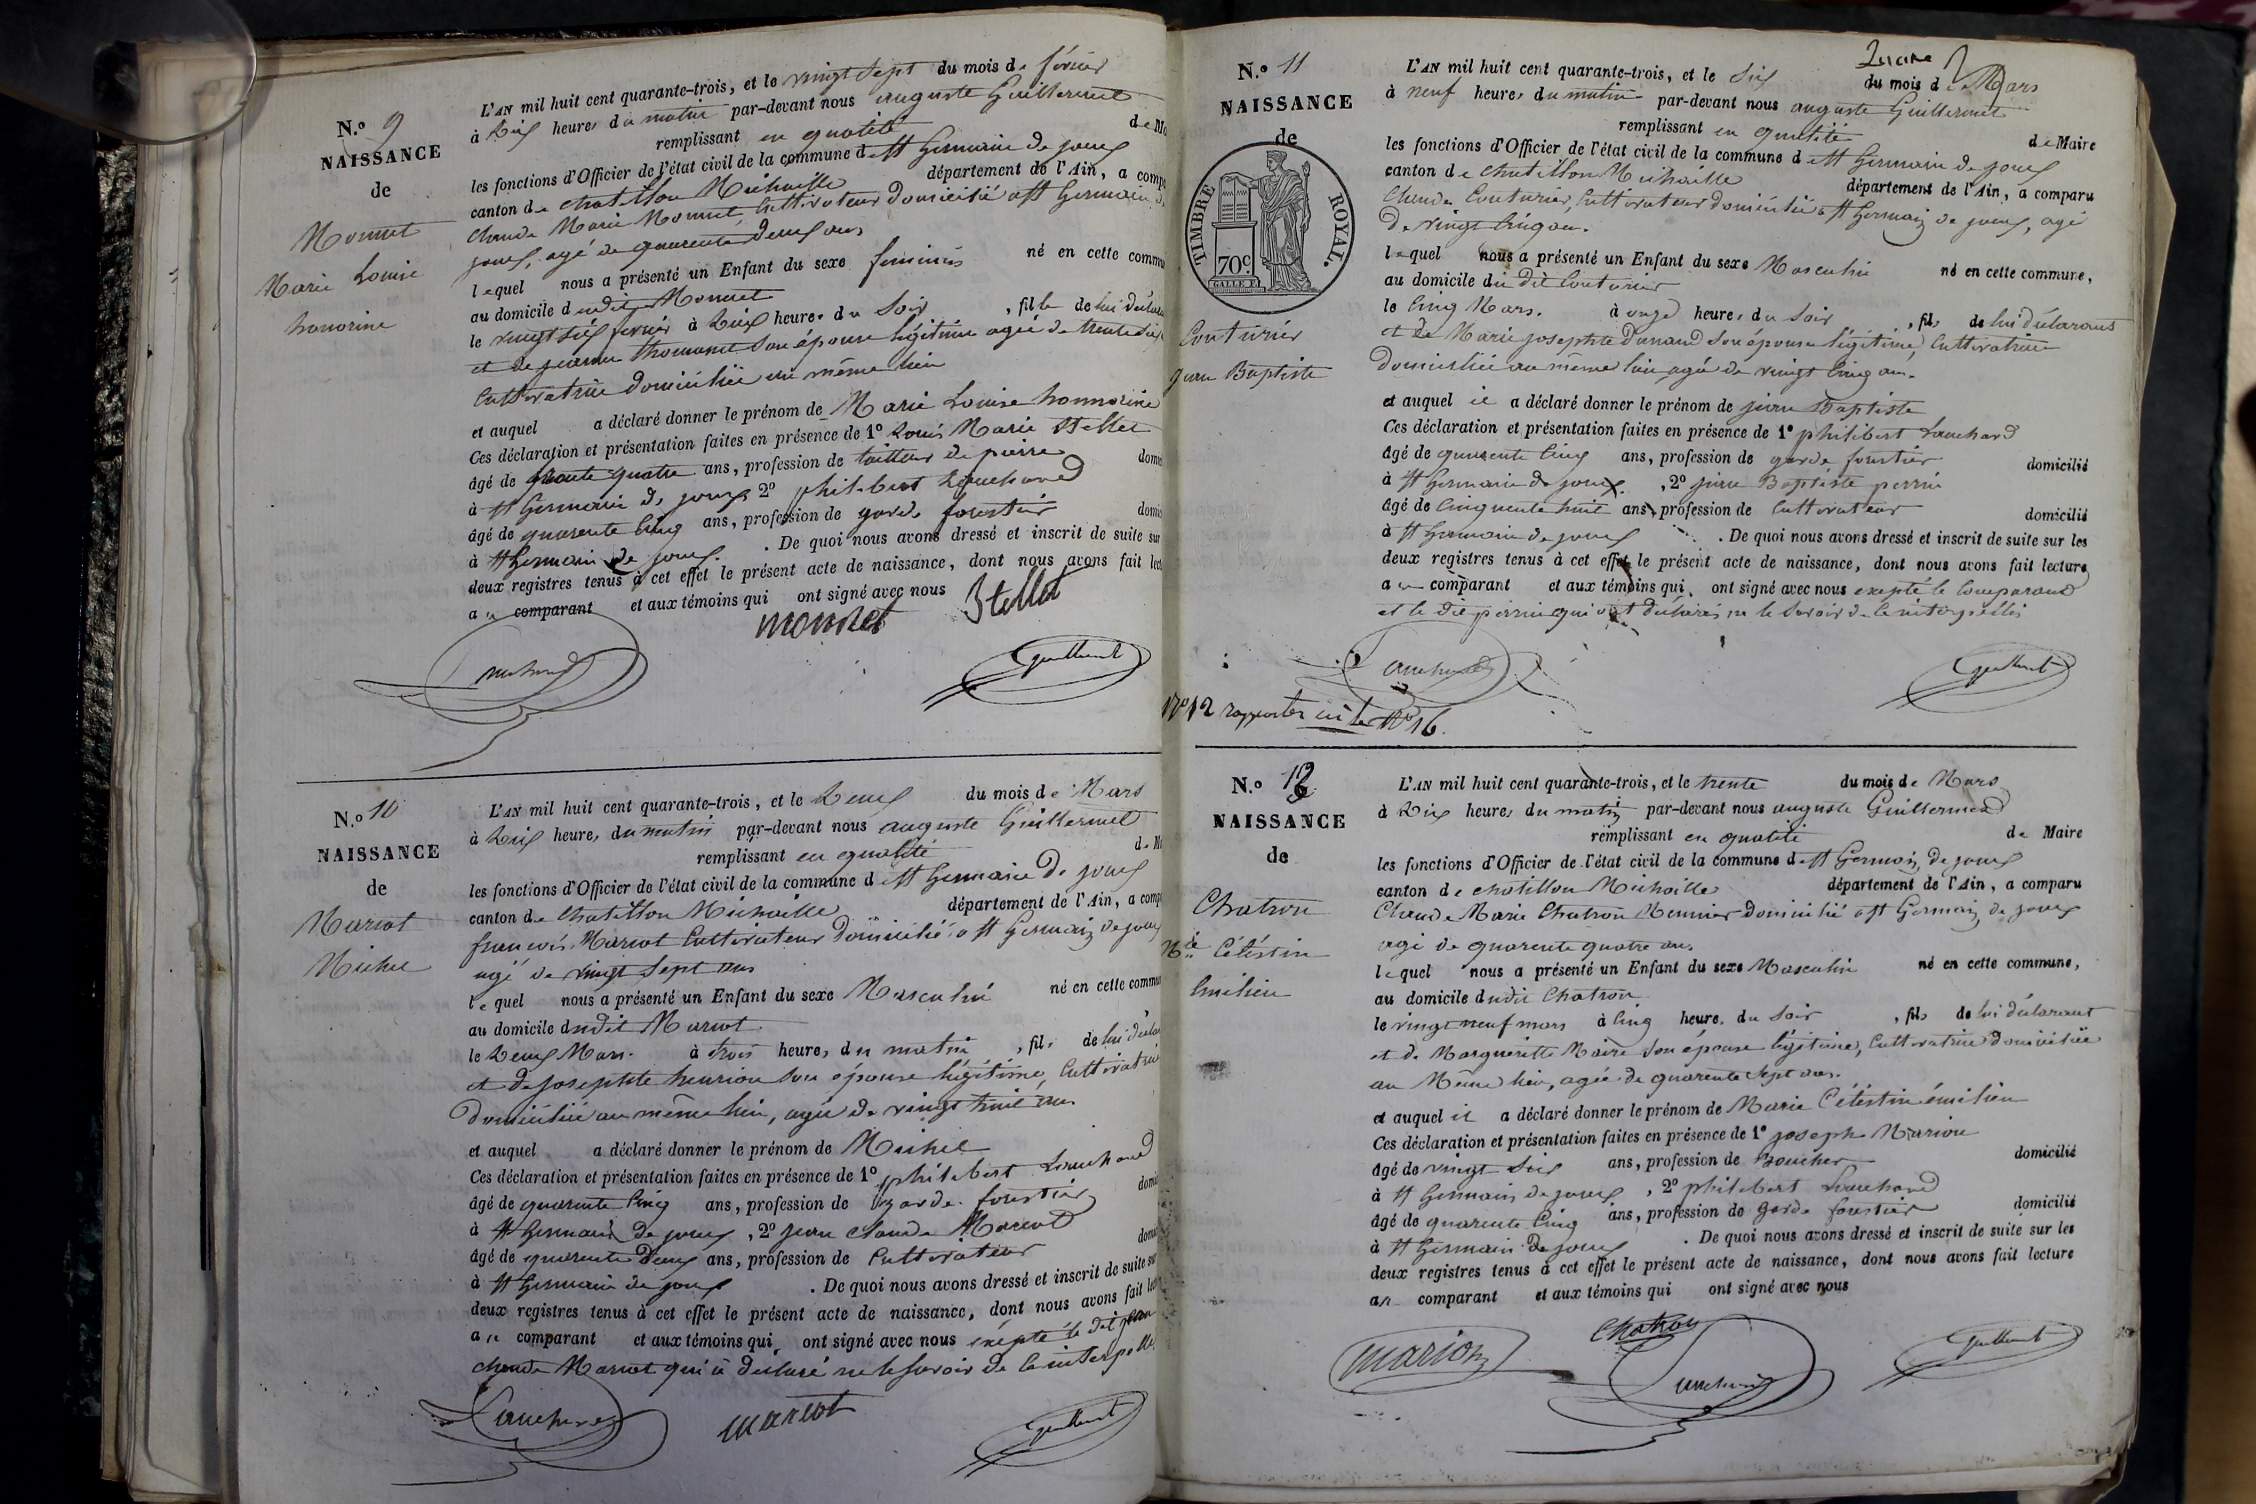 N.o 9
NAISSANCE
de
Monnet
Marie Louise
honorine
L'AN mil huit cent quarante-trois, et le vingt sept du mois de février
à dix heures du matin par-devant nous auguste Guillermet
remplissant en qualité de Ma
les fonctions d'Officier de l'état civil de la commune de St Germain de joux
canton de chatillon Michaille département de l'Ain, a compa
Claude Marie Monnet, Cultivateur domicilié a St Germain de
joux, agé de quarente deux ans
lequel nous a présenté un Enfant du sexe feminin né en cette commu
au domicile dudit Monnet
le vingt six fevrier à dix heures du Soir, fille de lui déclara
et de jeanne thomasset Son épouse légitime agée de trente six
Cultivatrice domiciliée au même lieu
et auquel a déclaré donner le prénom de Marie Louise honnorine
Ces déclaration et présentation faites en présence de 1o Louis Marie Stellet
âgé de trente quatre ans, profession de tailleur de pierre domi
à St Germain de joux, 2o philibert Louchard
âgé de quarente Cinq ans, profession de garde forestier domi
à St Germain de joux. De quoi nous avons dressé et inscrit de suite sur
deux registres tenus à cet effet le présent acte de naissance, dont nous avons fait lect
au comparant et aux témoins qui ont signé avec nous
monnet Stellet
guillermet
N.o 10
NAISSANCE
de
Marcot
Michel
L'AN mil huit cent quarante-trois, et le deux du mois de Mars
à dix heures du matin par-devant nous auguste Guillermet
remplissant en qualité de M
les fonctions d'Officier de l'état civil de la commune de St Germain de joux
canton de Chatillon Michaille département de l'Ain, a comp
françois Marcot Cultivateur domicilié a St Germain de joux
agé de vingt Sept ans
lequel nous a présenté un Enfant du sexe Masculin né en cette commu
au domicile dudit Marcot
le deux Mars. à trois heures du matin, fils de lui décla
et de josephte henriou Son épouse légitime, Cultivatrice
domiciliée au même lieu, agée de vingt huit ans
et auquel a déclaré donner le prénom de Michel
Ces déclaration et présentation faites en présence de 1o philibert Louchard
âgé de quarente Cinq ans, profession de garde forestier domi
à St Germain de joux, 2o jean claude Marcot
âgé de quarente deux ans, profession de Cultivateur domi
à St Germain de joux. De quoi nous avons dressé et inscrit de suite sur
deux registres tenus à cet effet le présent acte de naissance, dont nous avons fait lec
au comparant et aux témoins qui ont signé avec nous exépté le dit jean
claude Marcot qui a déclaré ne le Savoir de ce interpellé
marcot
guillermet
N.o 11
NAISSANCE
de
TIMBRE ROYAL.
70c
Couturier
jean Baptiste
L'AN mil huit cent quarante-trois, et le Six du mois de Mars
à neuf heures du matin par-devant nous auguste Guillermet
remplissant en qualité de Maire
les fonctions d'Officier de l'état civil de la commune de St Germain de joux
canton de chatillon Michaille département de l'Ain, a comparu
Claude Couturier, Cultivateur domicilié a St Germain de joux, agé
de vingt Cinq ans.
lequel nous a présenté un Enfant du sexe Masculin né en cette commune,
au domicile du dit Couturier
le Cinq Mars. à onze heures du Soir, fils de lui déclarant
et de Marie josephte Dunand Son épouse légitime, Cultivatrice
domiciliée au même lieu, agée de vingt Cinq ans.
et auquel il a déclaré donner le prénom de jean Baptiste
Ces déclaration et présentation faites en présence de 1o philibert Louchard
âgé de quarente Cinq ans, profession de garde forestier domicilié
à St Germain de joux., 2o jean Baptiste perrin
âgé de Cinquente huit ans, profession de Cultivateur domicilié
à St Germain de joux. De quoi nous avons dressé et inscrit de suite sur les
deux registres tenus à cet effet le présent acte de naissance, dont nous avons fait lecture
au comparant et aux témoins qui ont signé avec nous exepté le Comparant
et le dit perrin qui ont déclarés ne le Savoir de ce interpellés
guillermet
No 12 rapporter N° 16.
N.o 13
NAISSANCE
de
Chatron
Célestin
émilien
L'AN mil huit cent quarante-trois, et le trente du mois de Mars
à dix heures du matin par-devant nous auguste Guillermet
remplissant en qualité de Maire
les fonctions d'Officier de l'état civil de la commune de St Germain de joux
canton de chatillon Michaille département de l'Ain, a comparu
Claude Marie Chatron Meunier domicilié a St Germain de joux
agé de quarente quatre ans.
lequel nous a présenté un Enfant du sexe Masculin né en cette commune,
au domicile dudit Chatron
le vingt neuf mars à Cinq heures du Soir, fils de lui déclarant
et de Marguerite Maire Son épouse légitime, Cultivatrice domiciliée
au Même lieu, agée de quarente Sept ans.
et auquel il a déclaré donner le prénom de Marie Célestin émilien
Ces déclaration et présentation faites en présence de 1o joseph Marion
âgé de vingt Six ans, profession de Boucher domicilié
à St Germain de joux, 2o philibert Louchard
âgé de quarente Cinq ans, profession de garde forestier domicilié
à St Germain de joux. De quoi nous avons dressé et inscrit de suite sur les
deux registres tenus à cet effet le présent acte de naissance, dont nous avons fait lecture
au comparant et aux témoins qui ont signé avec nous
marion Chatron
guillermet